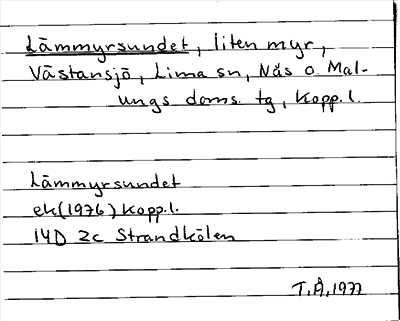 Lämmyrsundet, liten myr,
Västansjö, Lima sn, Nås o. Mal-
ungs doms. tg, Kopp. l.
Lämmyrsundet
ek (1976) Kopp. l.
14D 2c Strandkölen
T.Å, 1977